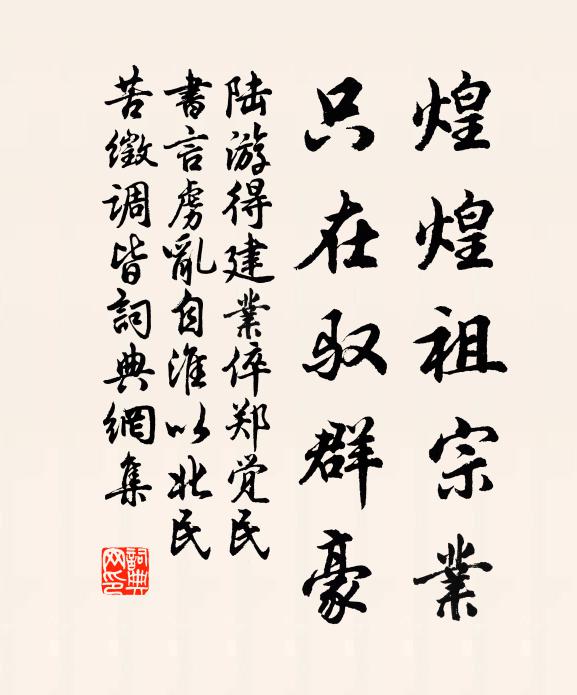 煌煌祖宗業
只在驭群豪
陆游得建業倅郑觉民
書言虜亂自淮以北民
苦徵调皆詞典網集
詞典网印